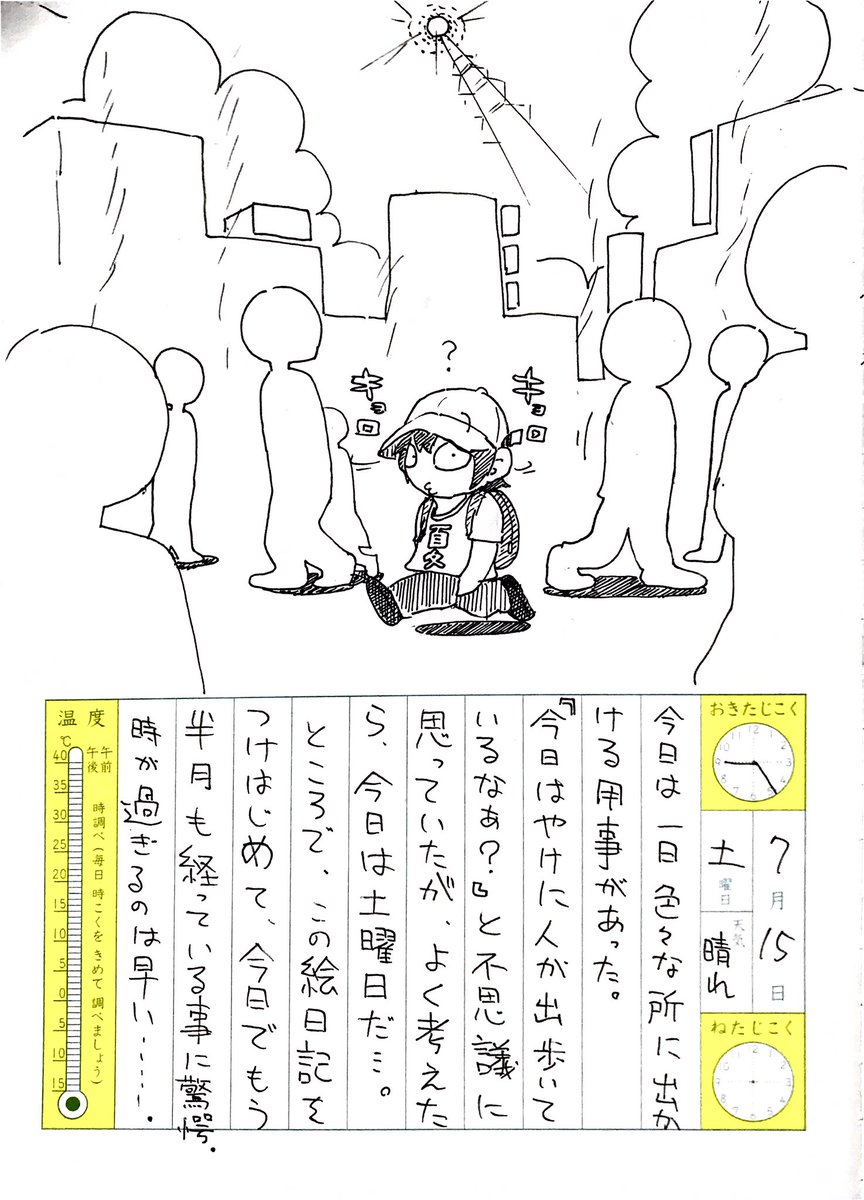 ?
キョロ
キョロ
百爻
おきたじこく
12
1
2
3
4
5
6
7
8
9
10
11
7月15日
土曜日
天気
晴れ
ねたじこく
12
1
2
3
4
5
6
7
8
9
10
11
今日は一日色々な所に出か
ける用事があった。
『今日はやけに人が出歩いて
いるなぁ？』と不思議に
思っていたが、よく考えた
ら、今日は土曜日だ…。
ところで、この絵日記を
つけはじめて、今日でもう
半月も経っている事に驚愕.
時が過ぎるのは早い…….
温度
℃
午前
午後
時調べ(毎日 時こくを きめて 調べましょう)
40
35
30
25
20
15
10
5
0
5
10
15